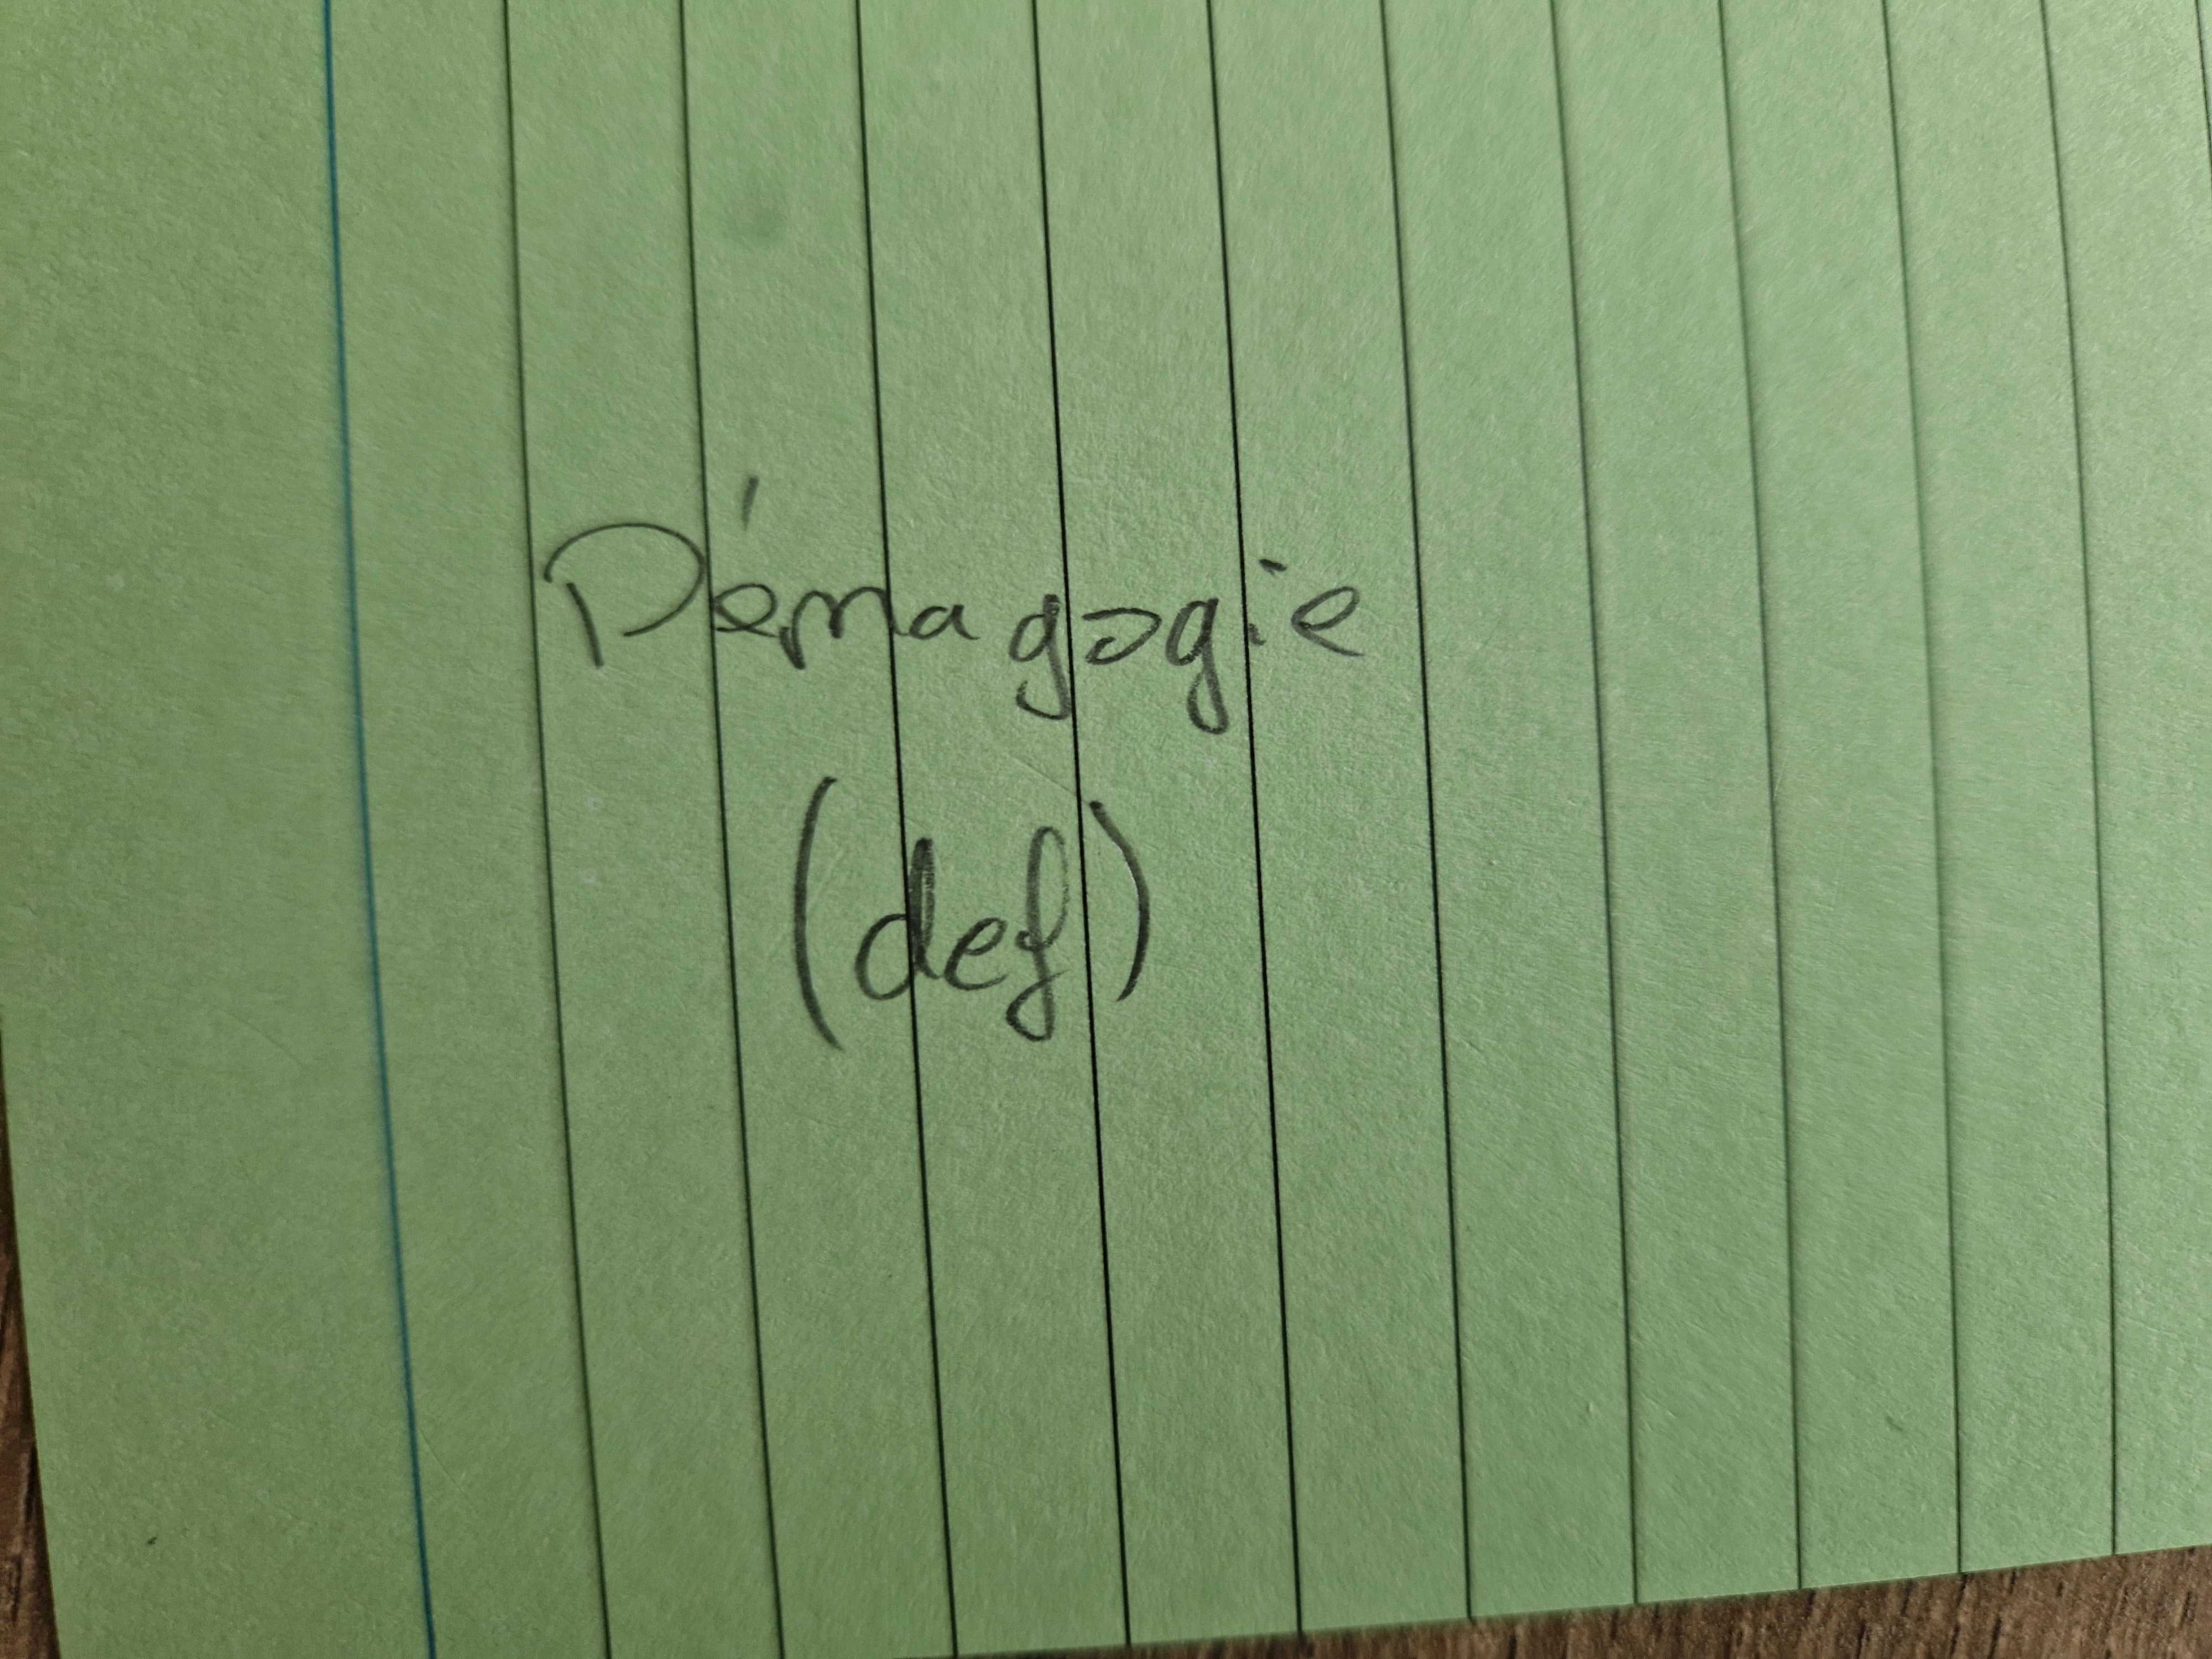 Démagogie
(def)